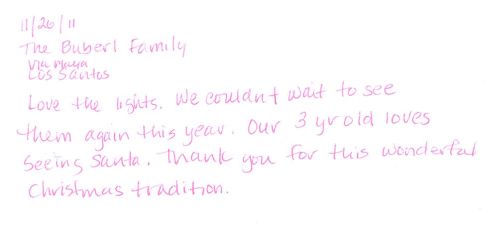 11/26/11
The Buberl Family
Via Maya
Los Santos
Love the lights. We couldnt wait to see
them again this year. Our 3 yr old loves
seeing Santa. Thank you for this wonderful
Christmas tradition.